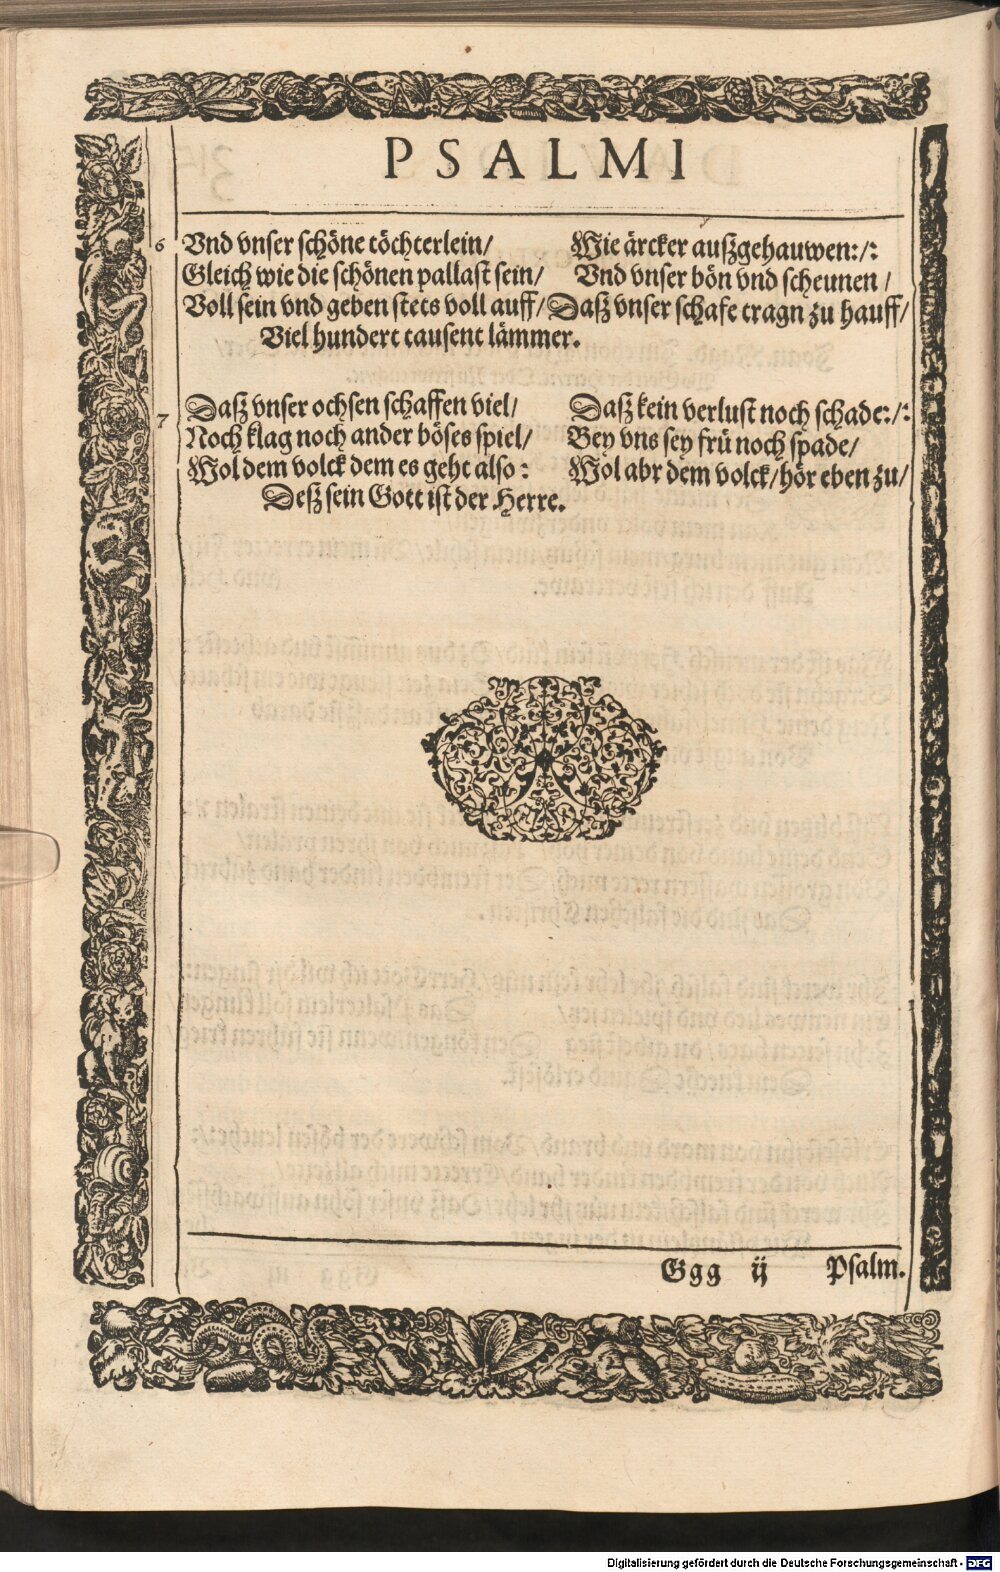 PSALMI
6 Vnd vnser schöne töchterlein/ Wie ärcker auszgehauwen:/:
Gleich wie die schönen pallast sein/ Vnd vnser bön vnd scheunen/
Voll sein vnd geben stets voll auff/ Dasz vnser schafe tragn zu hauff/
Viel hundert tausent lämmer.
7 Dasz vnser ochsen schaffen viel/ Dasz kein verlust noch schade:/:
Noch klag noch ander böses spiel/ Bey vns sey frü noch spade/
Wol dem volck dem es geht also: Wol abr dem volck/ hör eben zu/
Desz sein Gott ist der Herre.
Ggg ij Psalm.
Digitalisierung gefördert durch die Deutsche Forschungsgemeinschaft - DFG